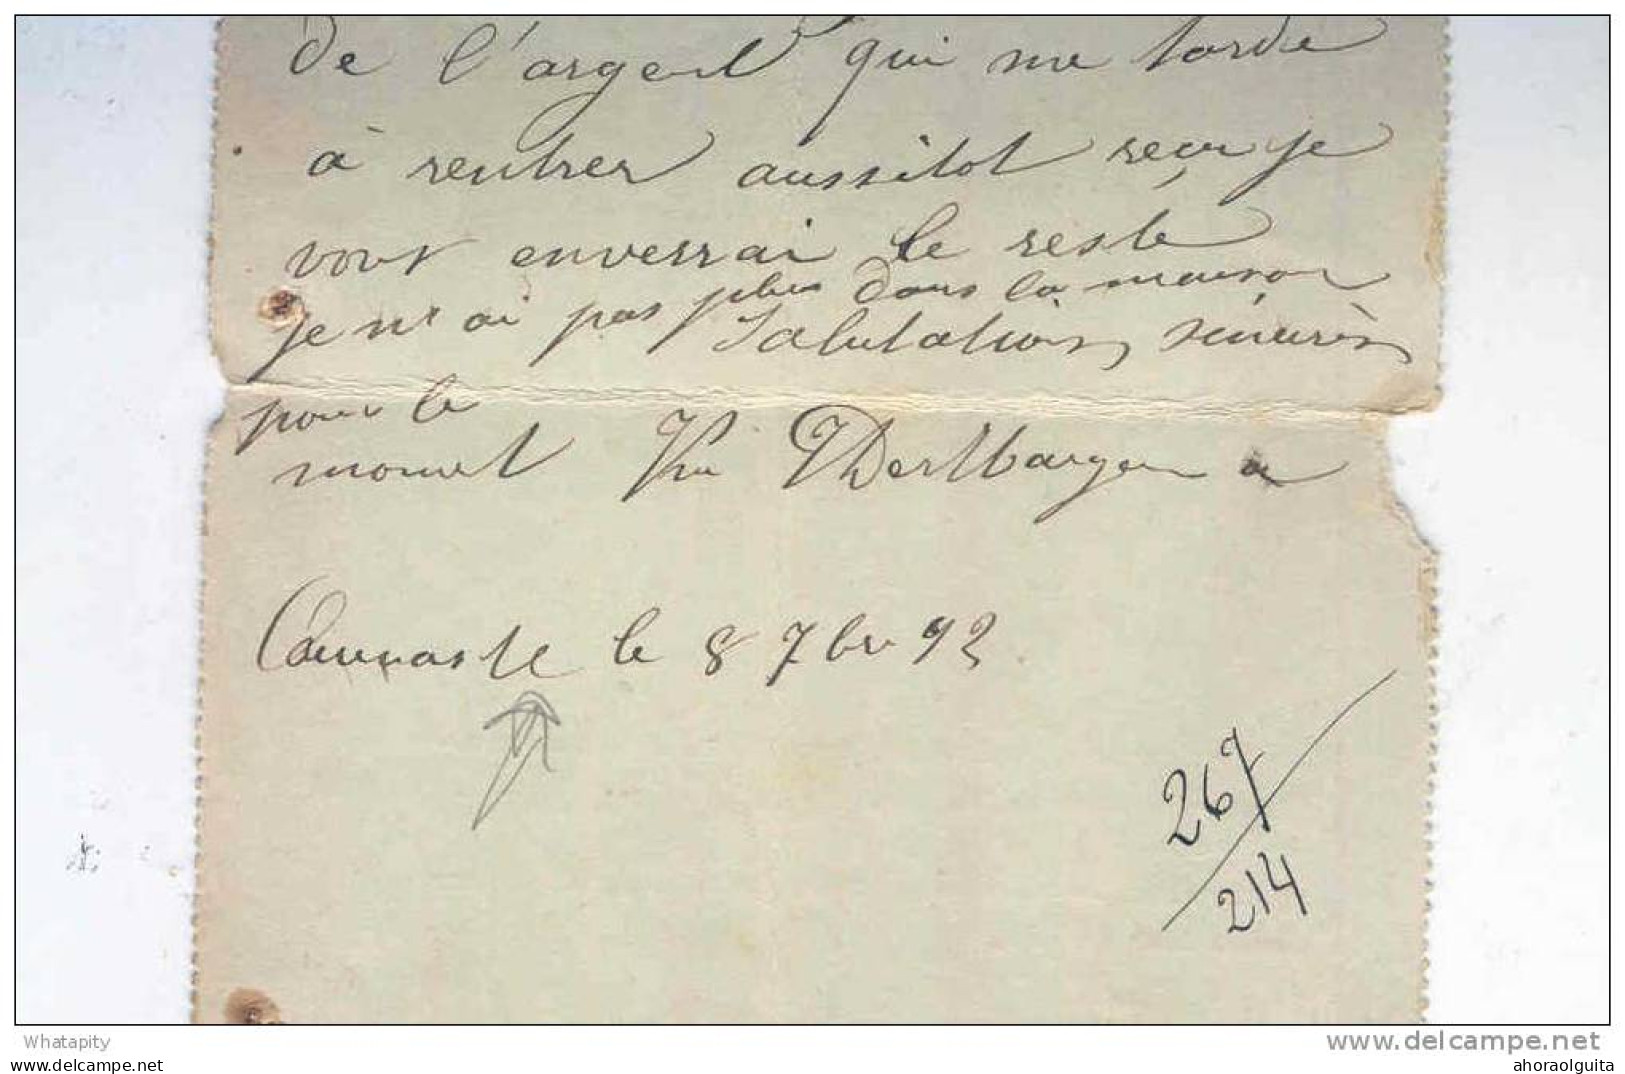 de l'argent qui me tarde
à rentrer aussitot reçu je
vous enverrai le reste
je n'ai pas plus dans la maison
Salutations sincères
pour le
moment Vve
le 8 7bre 92
267
214
Whatapity
www.delcampe.net
ahoraolguita